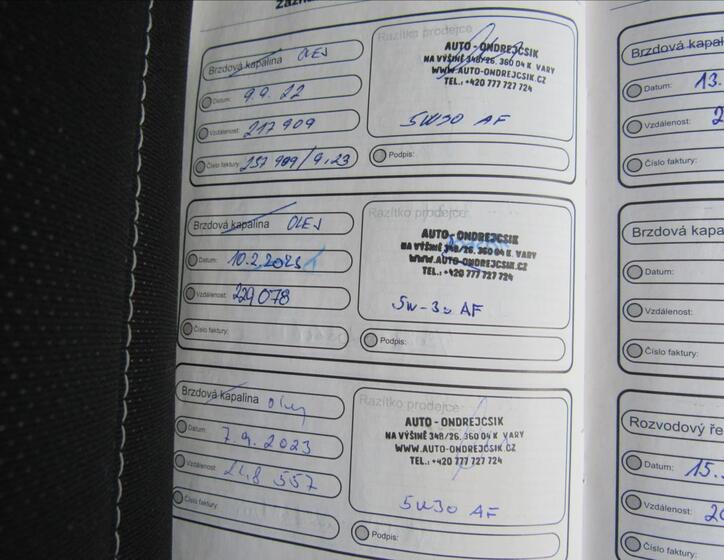 Brzdová kapalina OLEJ
Datum: 9.9. 22
Vzdálenost: 217 909
Číslo faktury: 237 909/9.23
Razítko prodejce
AUTO - ONDREJCSIK
NA VÝŠINĚ 348/26, 360 04 K. VARY
WWW.AUTO-ONDREJCSIK.CZ
TEL.: +420 777 727 724
5W30 AF
Podpis:
Brzdová kapalina OLEJ
Datum: 10.2.2023
Vzdálenost: 229 078
Číslo faktury:
Razítko prodejce
AUTO - ONDREJCSIK
NA VÝŠINĚ 348/26, 360 04 K. VARY
WWW.AUTO-ONDREJCSIK.CZ
TEL.: +420 777 727 724
5W-30 AF
Podpis:
Brzdová kapalina olej
Datum: 7.9.2023
Vzdálenost: 557
Číslo faktury:
Razítko prodejce
AUTO - ONDREJCSIK
NA VÝŠINĚ 348/26, 360 04 K. VARY
WWW.AUTO-ONDREJCSIK.CZ
TEL.: +420 777 727 724
5W30 AF
Podpis:
Brzdová kapal
Datum: 13.
Vzdálenost: 2
Číslo faktury:
Brzdová kapa
Datum:
Vzdálenost:
Číslo faktury:
Rozvodový ře
Datum: 15.
Vzdálenost: 20
Číslo faktury: